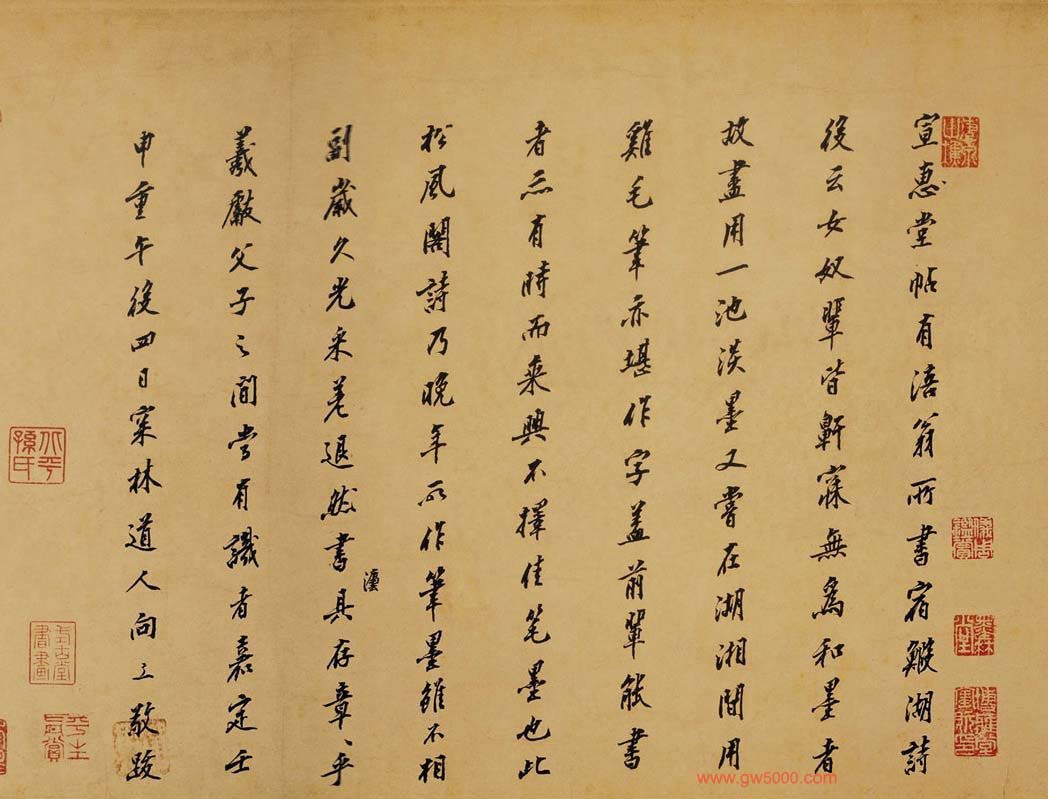 宣惠堂帖有涪翁所書宿鰕湖詩
後云女奴輩皆鼾寐無爲和墨者
故盡用一池淡墨又嘗在湖湘間用
雞毛筆亦堪作字蓋前輩能書
者亦有時而乘興不擇佳筆墨也此
松風閣詩乃晚年所作筆墨雖不相
副歲久光采差退然書灋具存章〻乎
羲獻父子之間當有識者嘉定壬
申重午後四日寀林道人向敬跋
北平孫氏
式古堂書畫
平生真賞
儀周鑑賞
www.gw5000.com